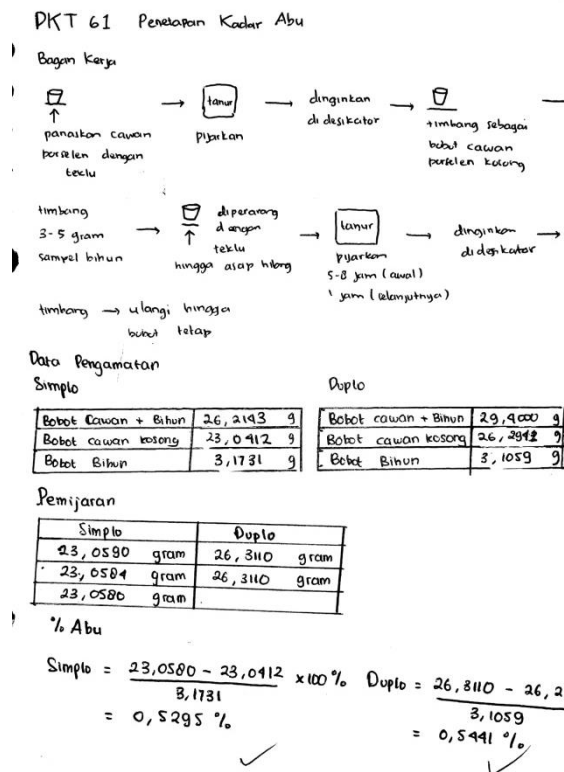 PKT 61 Penetapan Kadar Abu
Bagan Kerja
panaskan cawan porselen dengan teklu → tanur pijarkan → dinginkan di desikator → timbang sebagai bobot cawan porselen kosong →
timbang 3-5 gram sampel bihun → diperarang dengan teklu hingga asap hilang → tanur pijarkan 5-8 jam (awal) 1 jam (selanjutnya) → dinginkan di desikator →
timbang → ulangi hingga bobot tetap
Data Pengamatan
Simplo Duplo
Bobot Cawan + Bihun 26,2143 g Bobot cawan + Bihun 29,4000 g
Bobot cawan kosong 23,0412 g Bobot cawan kosong 26,2941 g
Bobot Bihun 3,1731 g Bobot Bihun 3,1059 g
Pemijaran
Simplo Duplo
23,0590 gram 26,3110 gram
23,0584 gram 26,3110 gram
23,0580 gram
% Abu
Simplo = 23,0580 - 23,0412 / 3,1731 × 100 % Duplo = 26,3110 - 26,2 / 3,1059
= 0,5295 % = 0,5441 %